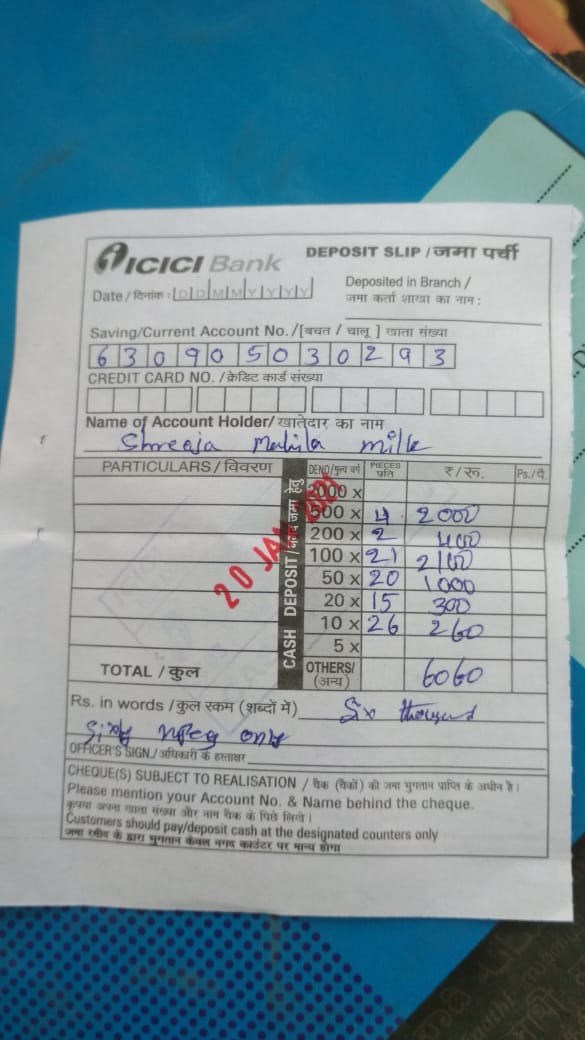 ICICI Bank
DEPOSIT SLIP / जमा पर्ची
Date / दिनांक : D D M M Y Y Y Y
Deposited in Branch /
जमा कर्ता शाखा का नाम :
Saving/Current Account No. / [बचत / चालू ] खाता संख्या
6 3 0 9 0 5 0 3 0 2 9 3
CREDIT CARD NO. / क्रेडिट कार्ड संख्या
Name of Account Holder/ खातेदार का नाम
Shreeja Mahila milk
PARTICULARS / विवरण DENO/मुल्य वर्ग PIECES प्रति ₹/ रू. Ps./पै.
CASH DEPOSIT / नकद जमा हेतु
2000 x
500 x 4 2000
200 x 2 400
100 x 21 2100
50 x 20 1000
20 x 15 300
10 x 26 260
5 x
20 JAN 2021
TOTAL / कुल OTHERS/ (अन्य) 6060
Rs. in words / कुल रकम (शब्दों में) Six thousand
Sixty rupees only
OFFICER'S SIGN./ अधिकारी के हस्ताक्षर
CHEQUE(S) SUBJECT TO REALISATION / चैक (चैकों) की जमा भुगतान प्राप्ति के अधीन है।
Please mention your Account No. & Name behind the cheque.
कृपया अपना खाता संख्या और नाम चैक के पिछे लिखे।
Customers should pay/deposit cash at the designated counters only
जमा रसीद के द्वारा भुगतान केवल नगद काउंटर पर मान्य होगा